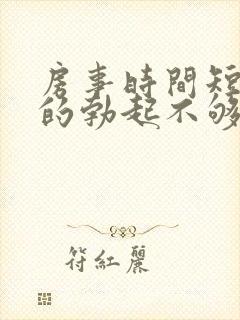 房事時間短
的勃起不够
符紅麗